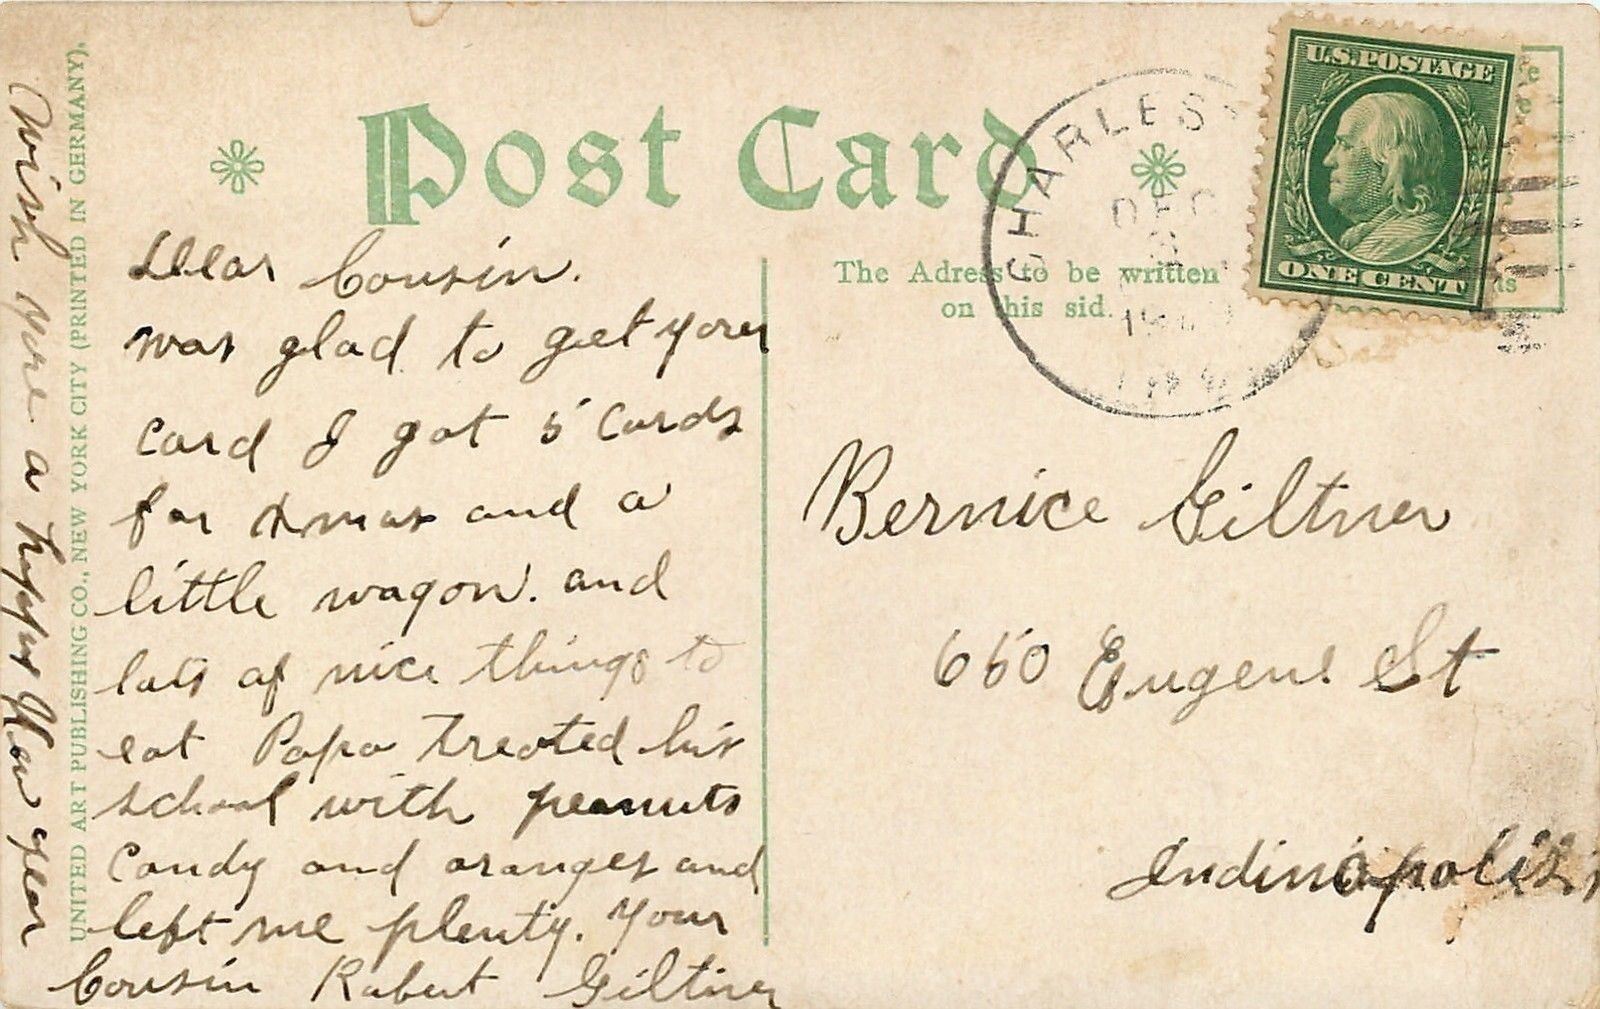 Post Card
CHARLEST
DEC
U.S. POSTAGE
ONE CENT
The Adress to be written
on this sid.
Dear Cousin.
was glad to get your
card I got 5 cards
for Xmas and a
little wagon. and
lots of nice things to
eat Papa treated his
school with peanuts
candy and oranges and
left me plenty. Your
Cousin Robert Giltner
wish you a happy New year
UNITED ART PUBLISHING CO., NEW YORK CITY (PRINTED IN GERMANY).
Bernice Giltner
650 Eugene St
Indinapolis